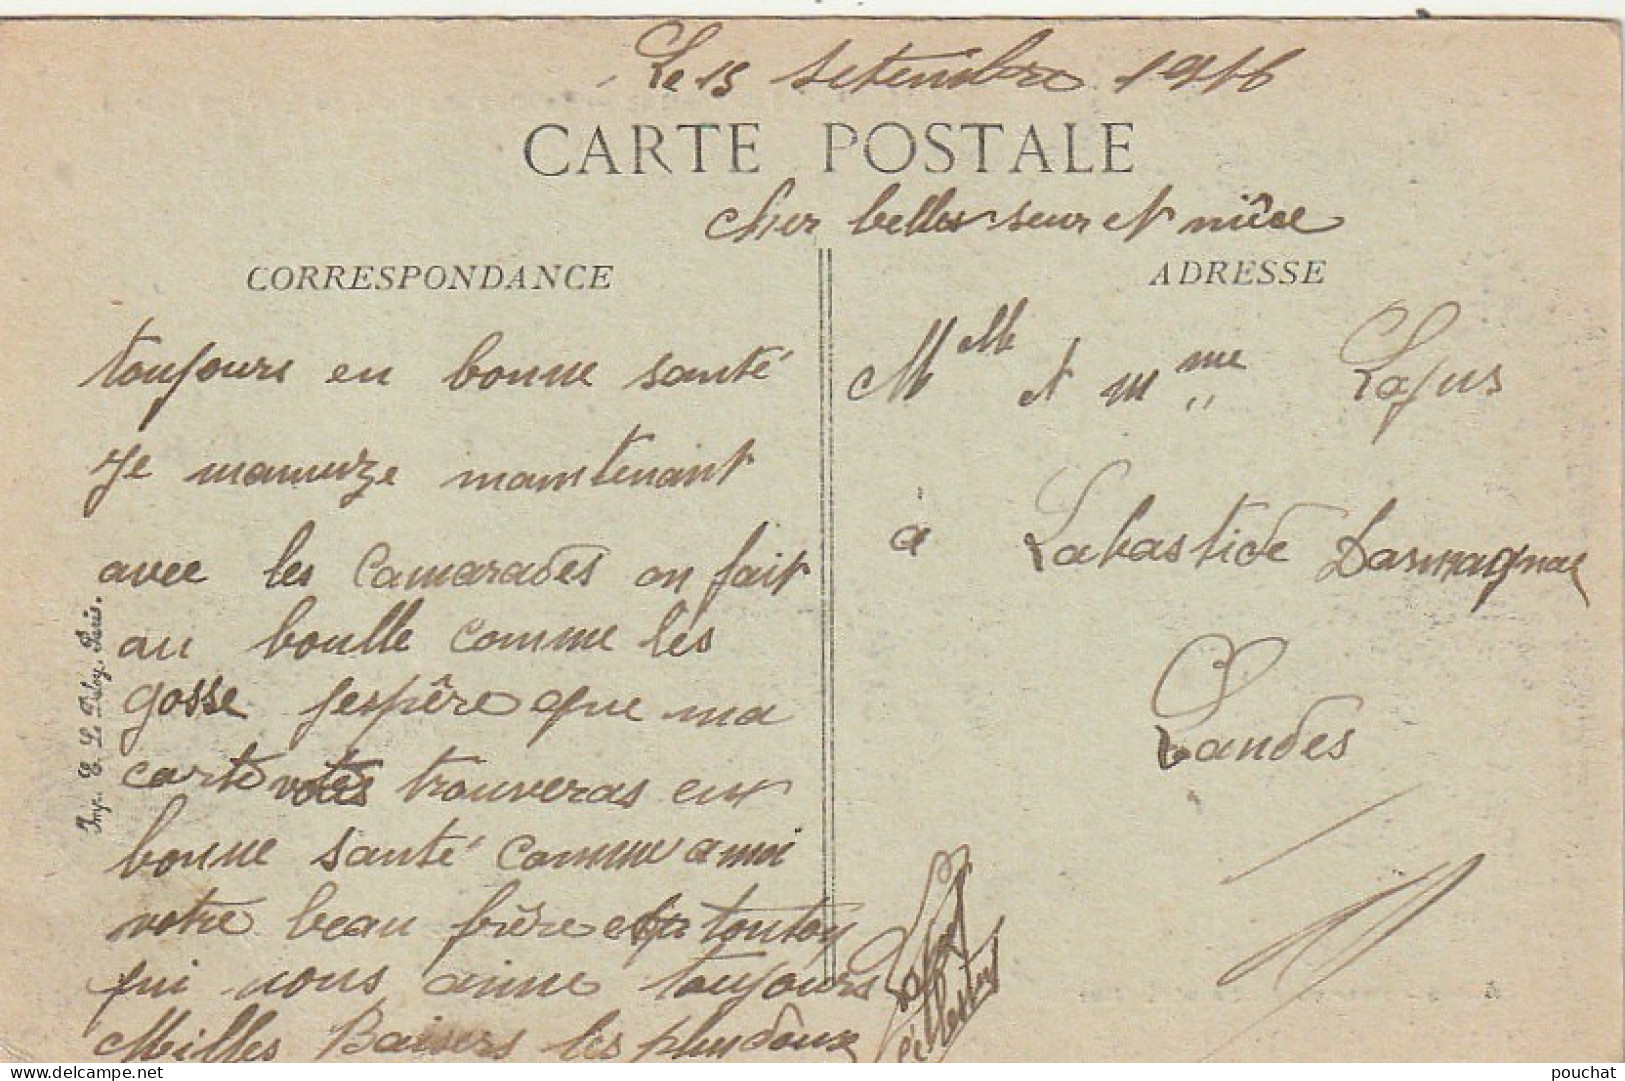 Le 15 setembre 1916
CARTE POSTALE
cher belles seur et nièce
CORRESPONDANCE
ADRESSE
toujours en bonne santé
Je mamuze maintenant
avec les Camarades on fait
au boulle comme les
gosse jespère que ma
carte votes trouveras en
bonne santé comme a moi
votre beau frère et tonton
qui vous aime toujours
Milles Baisers les plus doux
Mlle et mme Lafus
a Labastide Darmagnac
Landes
Imp. E. Le Deley, Paris.
pouchat